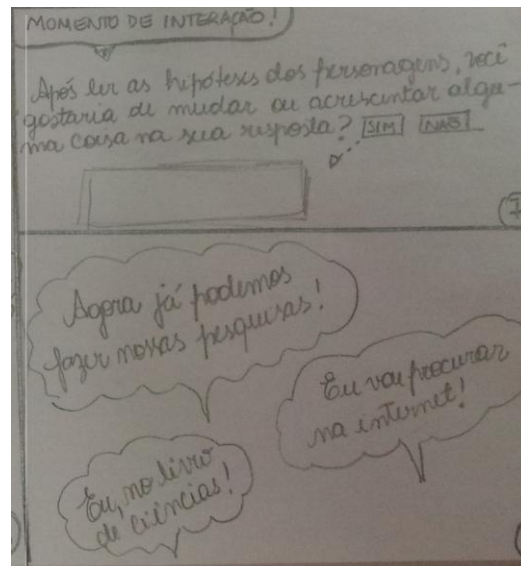 MOMENTO DE INTERAÇÃO!
Após ler as hipóteses dos personagens, você
gostaria de mudar ou acrescentar algu-
ma coisa na sua resposta? SIM NÃO
7
Agora já podemos
fazer nossas pesquisas!
Eu vou procurar
na internet!
Eu, no livro
de ciências!